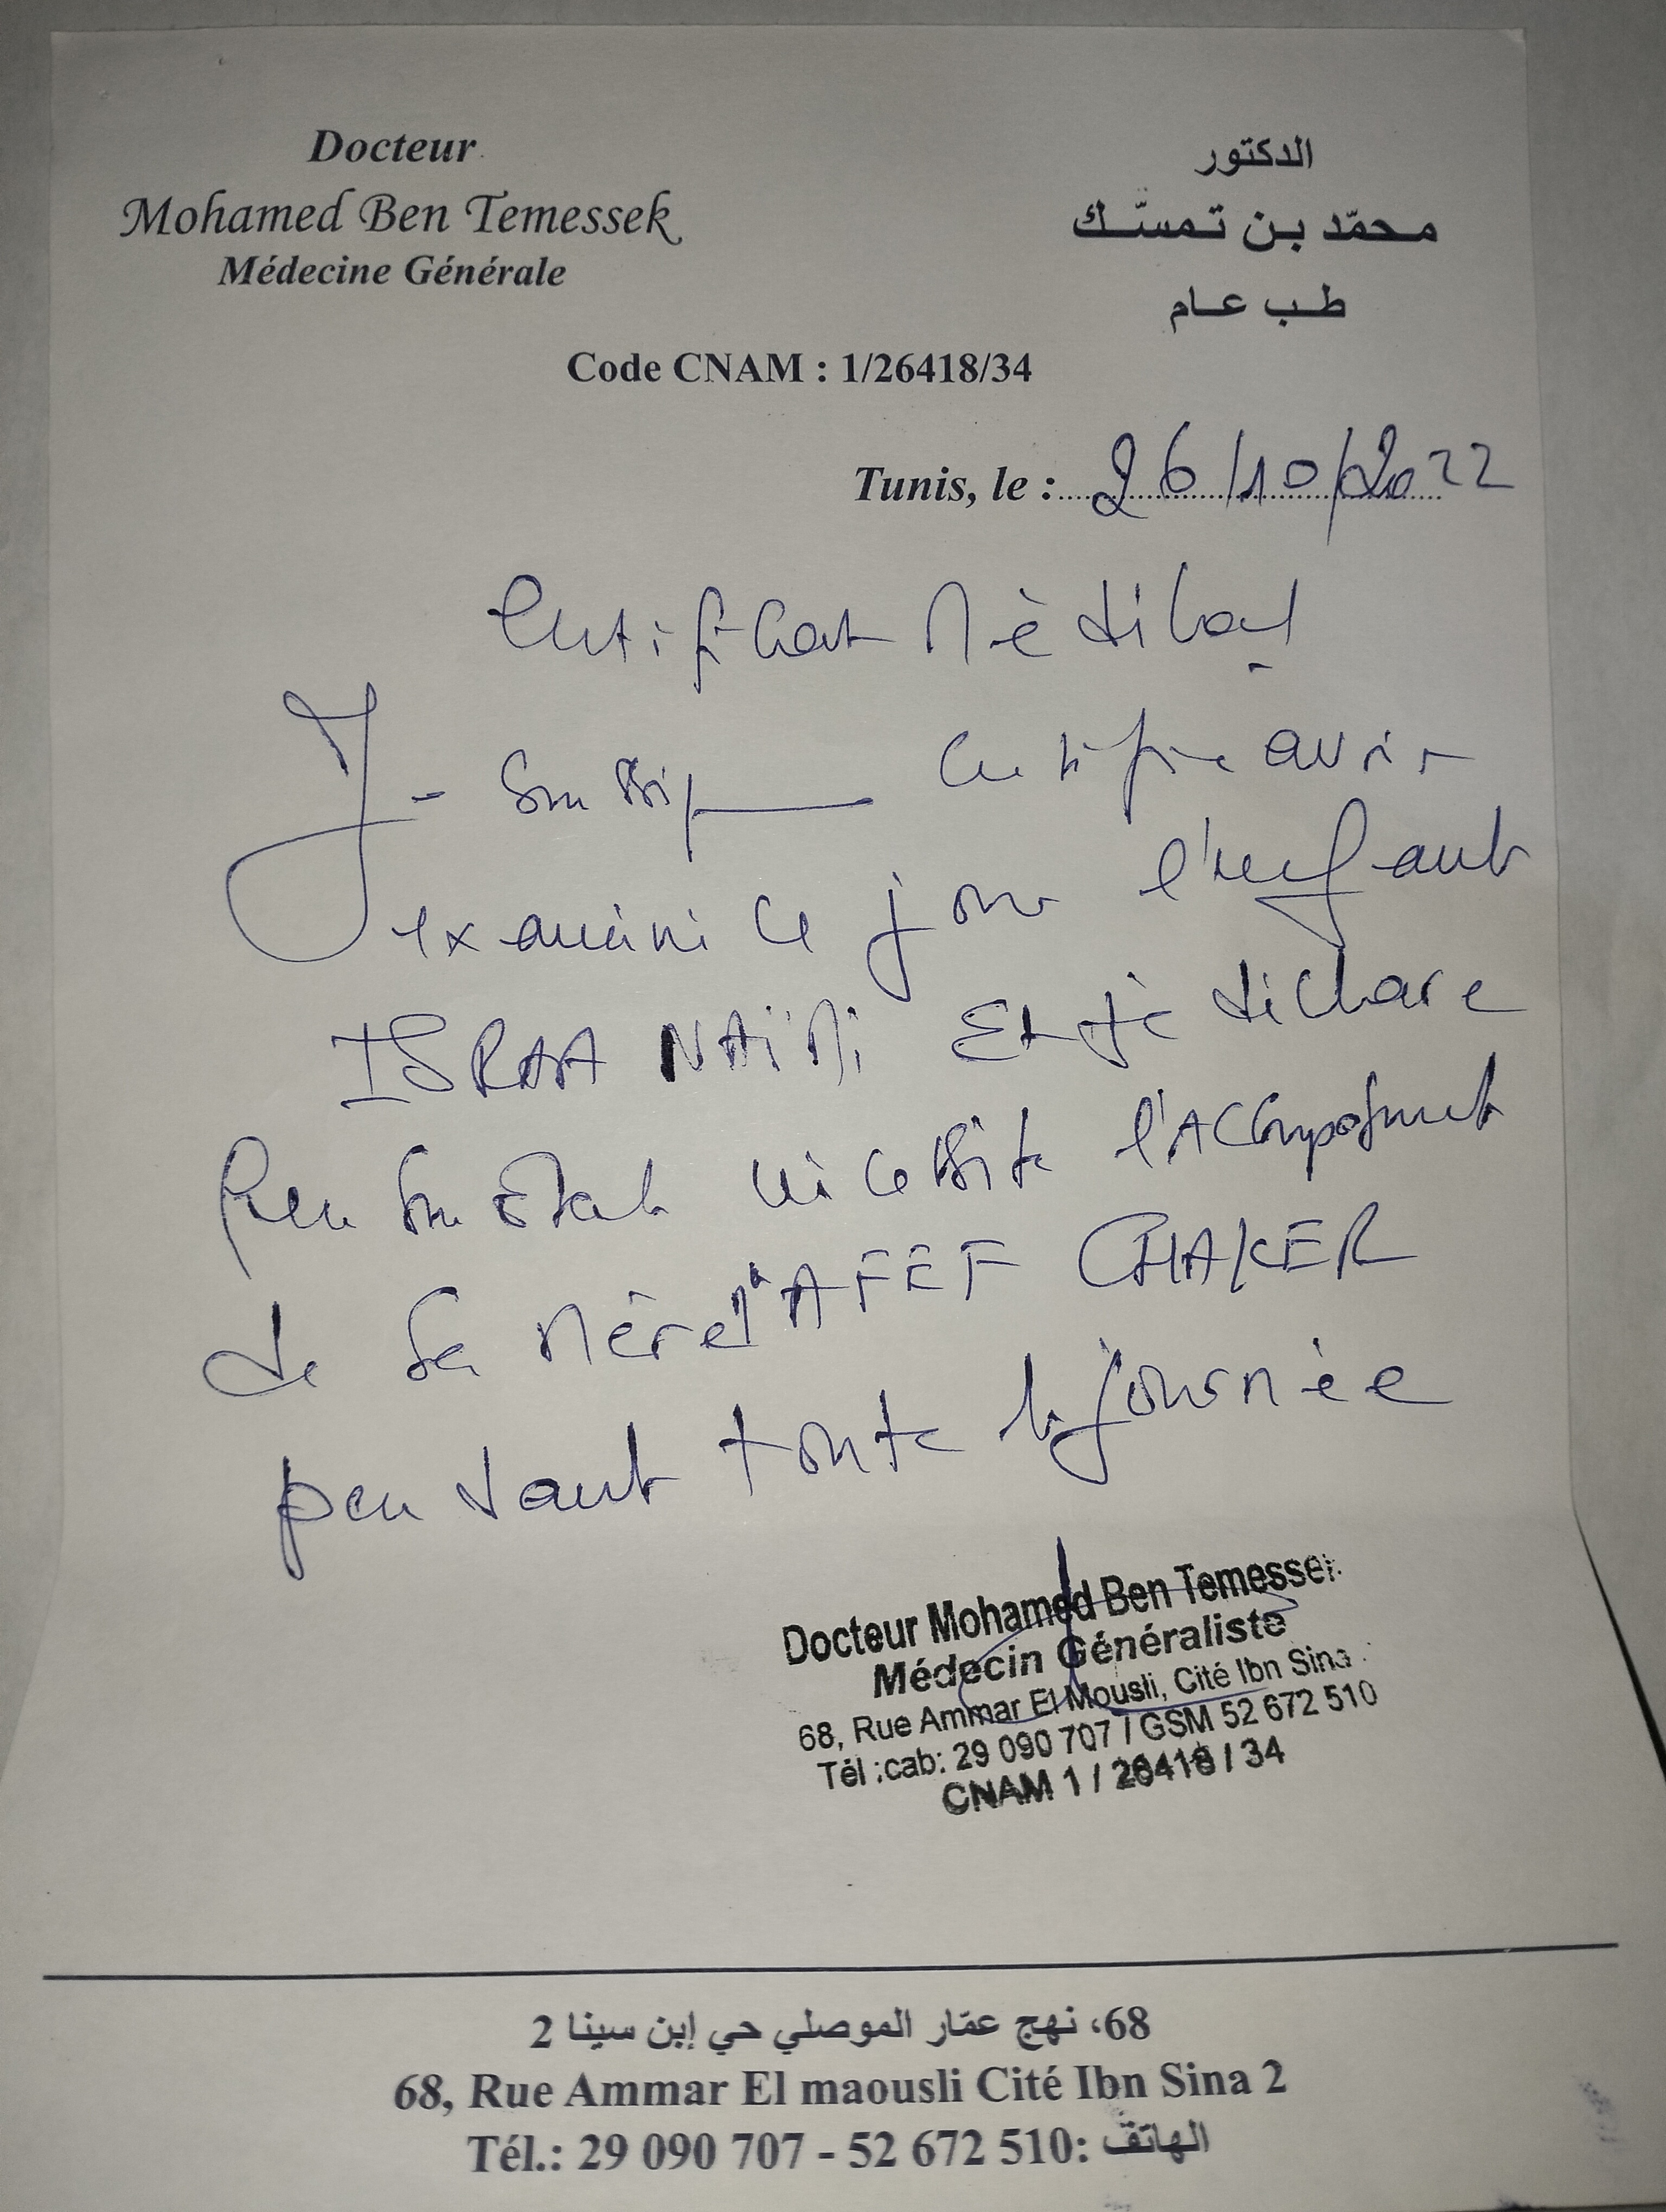 Docteur
Mohamed Ben Temessek
Médecine Générale
الدكتور
محمّد بن تمسّك
طب عام
Code CNAM : 1/26418/34
Tunis, le : 26/10/2022
Certificat Médical
Je soussigné certifie avoir
examiné ce jour l'enfant
ISRAA NAÏMI Et je déclare
que son état nécessite l'Accompagnement
de sa Mère AFEF CHAKER
pendant toute la journée
Docteur Mohamed Ben Temessek
Médecin Généraliste
68, Rue Ammar El Mousli, Cité Ibn Sina
Tél :cab: 29 090 707 / GSM 52 672 510
CNAM 1 / 26418 / 34
68، نهج عمّار الموصلي حي إبن سينا 2
68, Rue Ammar El maousli Cité Ibn Sina 2
Tél.: 29 090 707 - 52 672 510 :الهاتف